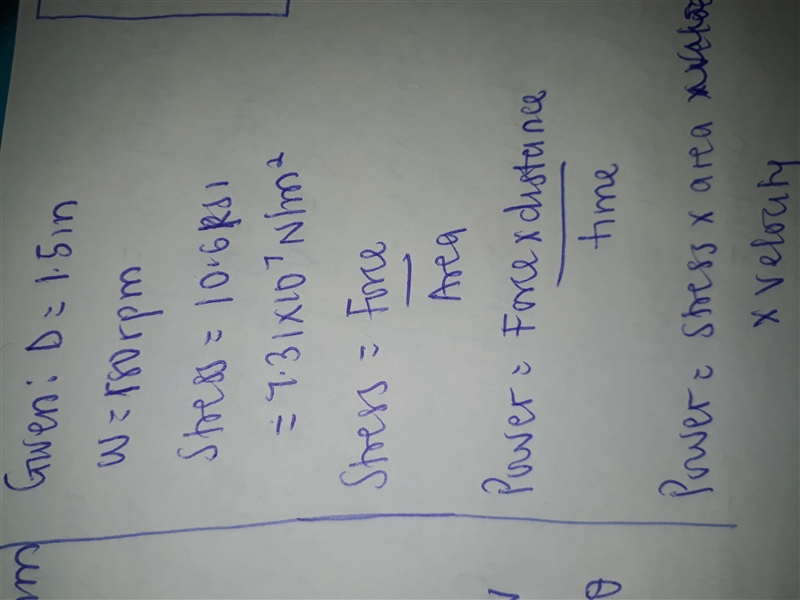 Given: D = 1.5 in
W = 180 rpm
Stress = 10.6 ksi
= 7.31 x 10⁷ N/m²
Stress = Force
Area
Power = Force x distance
time
Power = Stress x area
x velocity
m
θ